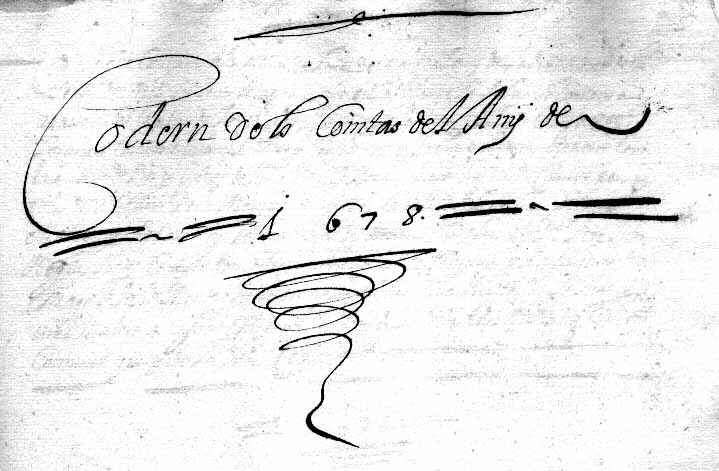 Codern dels Comtas del Anÿ de
1678.